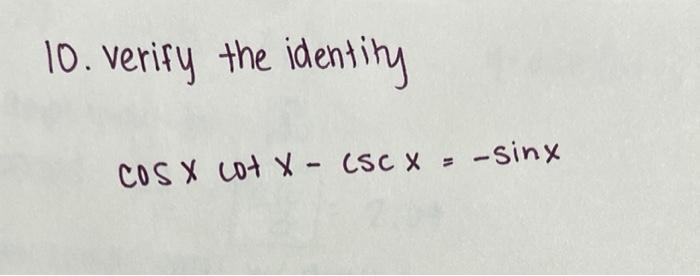 10. verify the identity
cos x cot x - csc x = -sinx